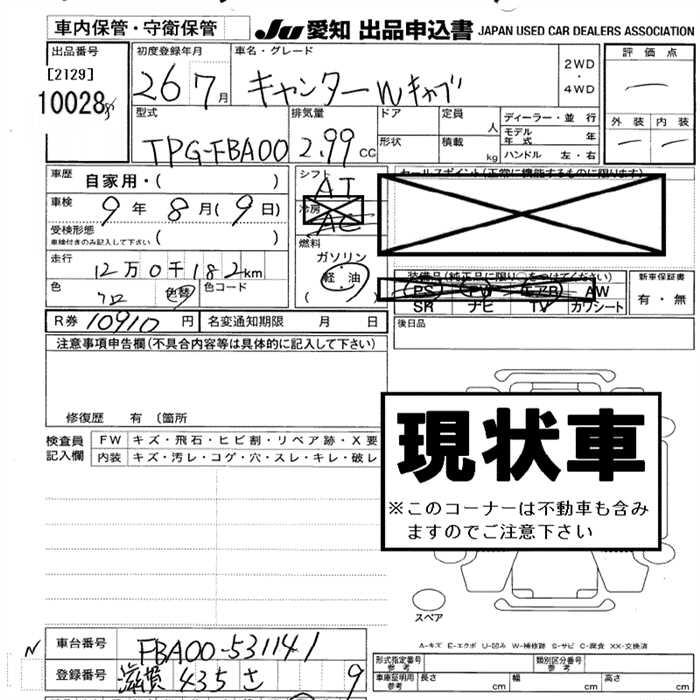 車内保管・守衛保管
JU 愛知 出品申込書 JAPAN USED CAR DEALERS ASSOCIATION
出品番号 初度登録年月 車名・グレード 2WD・4WD 評価点
[2129]
10028 26 7月 キャンターWキャブ
型式 排気量 ドア 定員 人 ディーラー・並行 外装 内装
TPG-FBA00 2.99 CC 形状 積載 kg モデル年式 年
ハンドル 左・右
車歴 自家用・( ) シフト AT セールスポイント(正常に機能するものに限ります)
車検 9年8月(9日) 冷房 AC
受検形態 車検付きのみ記入して下さい ( ) 燃料 ガソリン
走行 12万0千182km 軽油 装備品(純正品に限り○をつけてください) 新車保証書
色 クロ 色替 色コード ( ) PS PW エアB AW 有・無
SR ナビ TV カワシート
R券 10910円 名変通知期限 月 日 後日品
注意事項申告欄(不具合内容等は具体的に記入して下さい)
修復歴 有 (箇所
現状車
※このコーナーは不動車も含みますのでご注意下さい
検査員記入欄 FW キズ・飛石・ヒビ割・リペア跡・X要
内装 キズ・汚レ・コゲ・穴・スレ・キレ・破レ
スペア
A-キズ E-エクボ U-凹み W-補修跡 S-サビ C-腐食 XX-交換済
N 車台番号 FBA00-531141
登録番号 滋賀 435 さ 9
形式指定番号 参考 類別区分番号 参考
車庫証明用 参考 長さ cm 幅 cm 高さ cm